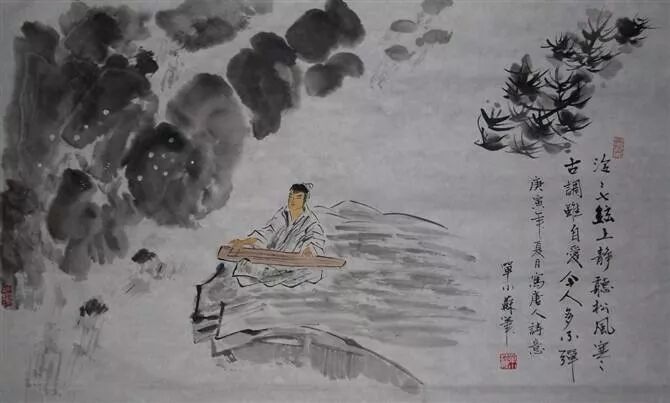 泠々七絲上靜聽松風寒
古調雖自愛今人多不彈
庚寅年夏月寫唐人詩意
單小蘇筆